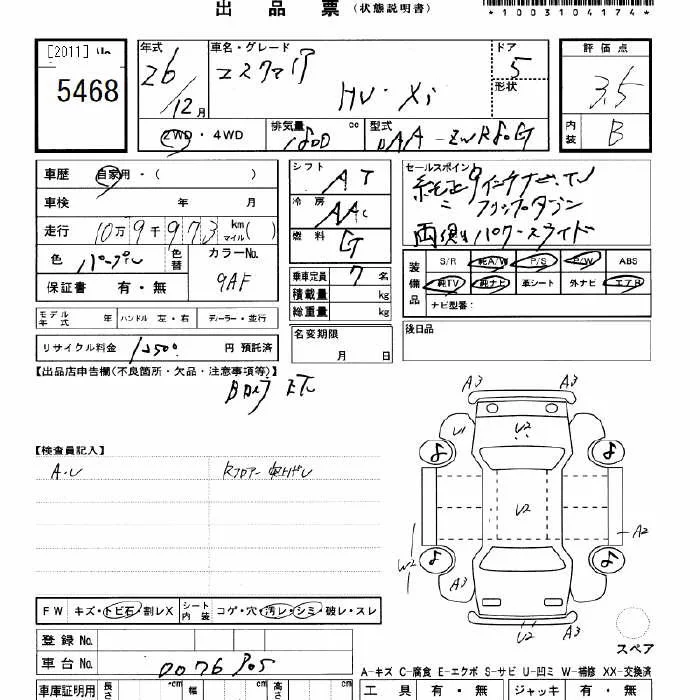 出品票(状態説明書)
*1003104174*
[2011] Lin
5468
年式
26/12月
車名・グレード
エスクァイア
HV・Xi
ドア
5
形状
評価点
3.5
内装
B
2WD・4WD
排気量
1800
cc
型式
DAA-ZWR80G
車歴
自家用・( )
車検
年 月
走行
10万9千973
km
マイル
( )
色
パープル
色替
カラーNo.
9AF
保証書 有・無
シフト
AT
冷房
AAC
燃料
G
乗車定員
7名
積載量
kg
総重量
kg
セールスポイント
純正9インチナビ、TV
〃フリップダウン
両側パワースライド
装備品
S/R
純A/W
P/S
P/W
ABS
純TV
純ナビ
革シート
外ナビ
エアB
ナビ型番:
モデル年式 年
ハンドル 左・右
ディーラー・並行
名変期限
月 日
後日品
リサイクル料金 12500 円 預託済
【出品店申告欄(不良箇所・欠品・注意事項等)】
Bカメラ ETC
【検査員記入】
A・U
Rフロアー
A3
A3
U1
U2
U2
W2
A2
A3
A3
U2
U2
スペア
FW キズ・トビ石・割レX
シート内装
コゲ・穴・汚レ・シミ・破レ・スレ
登録No.
車台No.
0076305
A-キズ C-腐食 E-エクボ S-サビ U-凹ミ W-補修 XX-交換済
車庫証明用
長さ
cm
幅
cm
高さ
cm
工具 有・無
ジャッキ 有・無